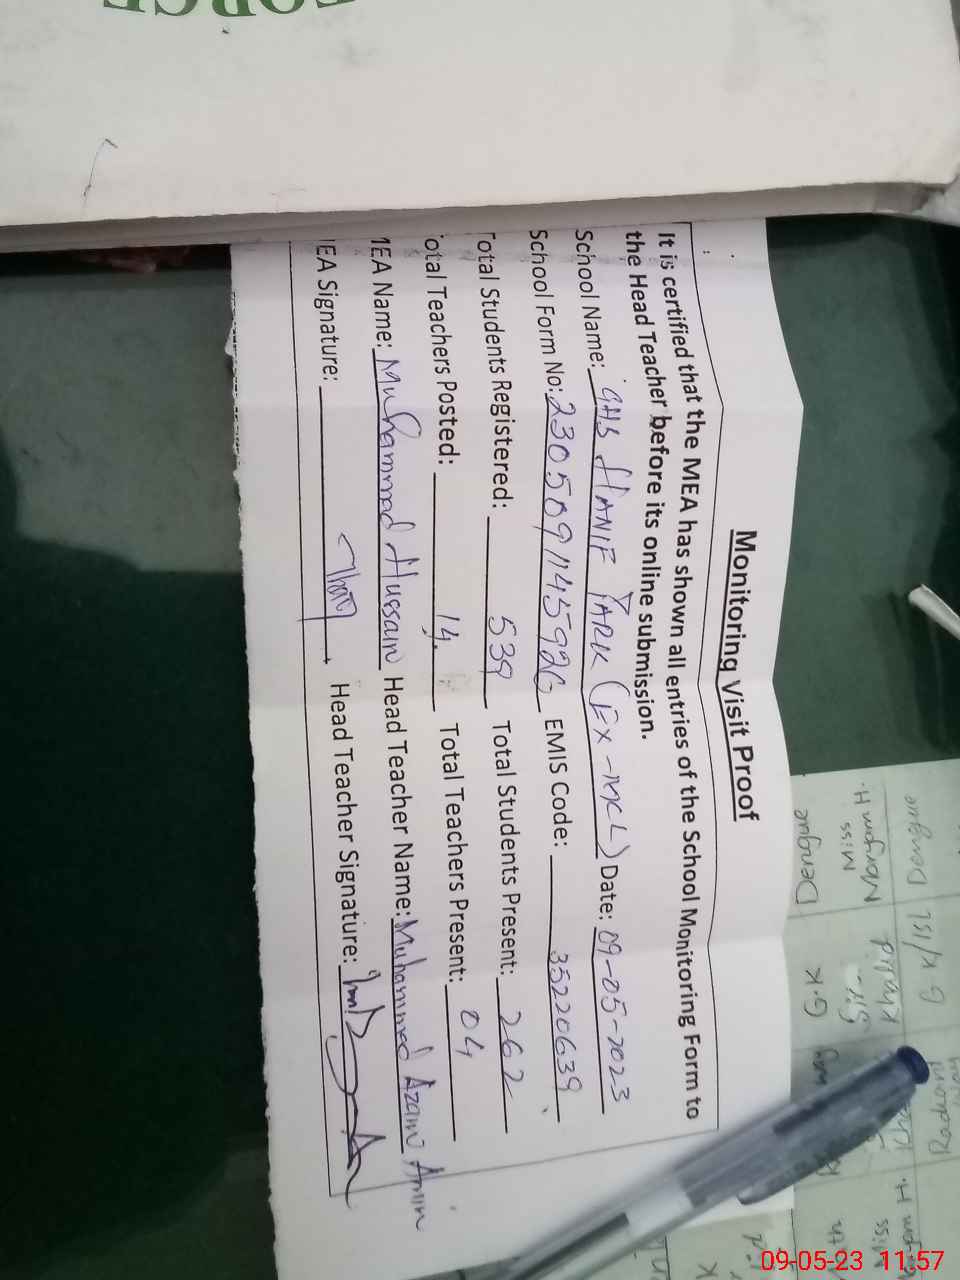 Monitoring Visit Proof
It is certified that the MEA has shown all entries of the School Monitoring Form to
the Head Teacher before its online submission.
School Name: GHS HANIF PARK (EX-MCL) Date: 09-05-2023
School Form No: 230509114592G EMIS Code: 35220639
Total Students Registered: 539 Total Students Present: 262
Total Teachers Posted: 14 Total Teachers Present: 04
MEA Name: Muhammad Hussain Head Teacher Name: Muhammad Azam Amin
MEA Signature: Head Teacher Signature:
Dengue G K/ISL
Maryam H. Khalid
Miss Sir
Dengue G.K
09-05-23 11:57